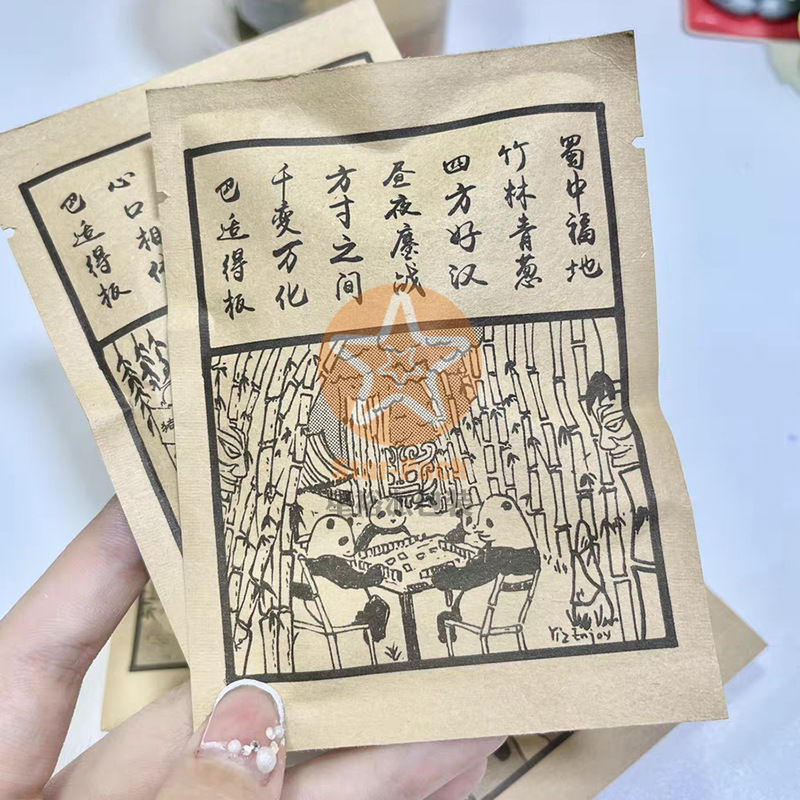 蜀中福地
竹林青葱
四方好汉
昼夜鏖战
方寸之间
千变万化
巴适得板
心口相
巴适得板
Yiz Enjoy